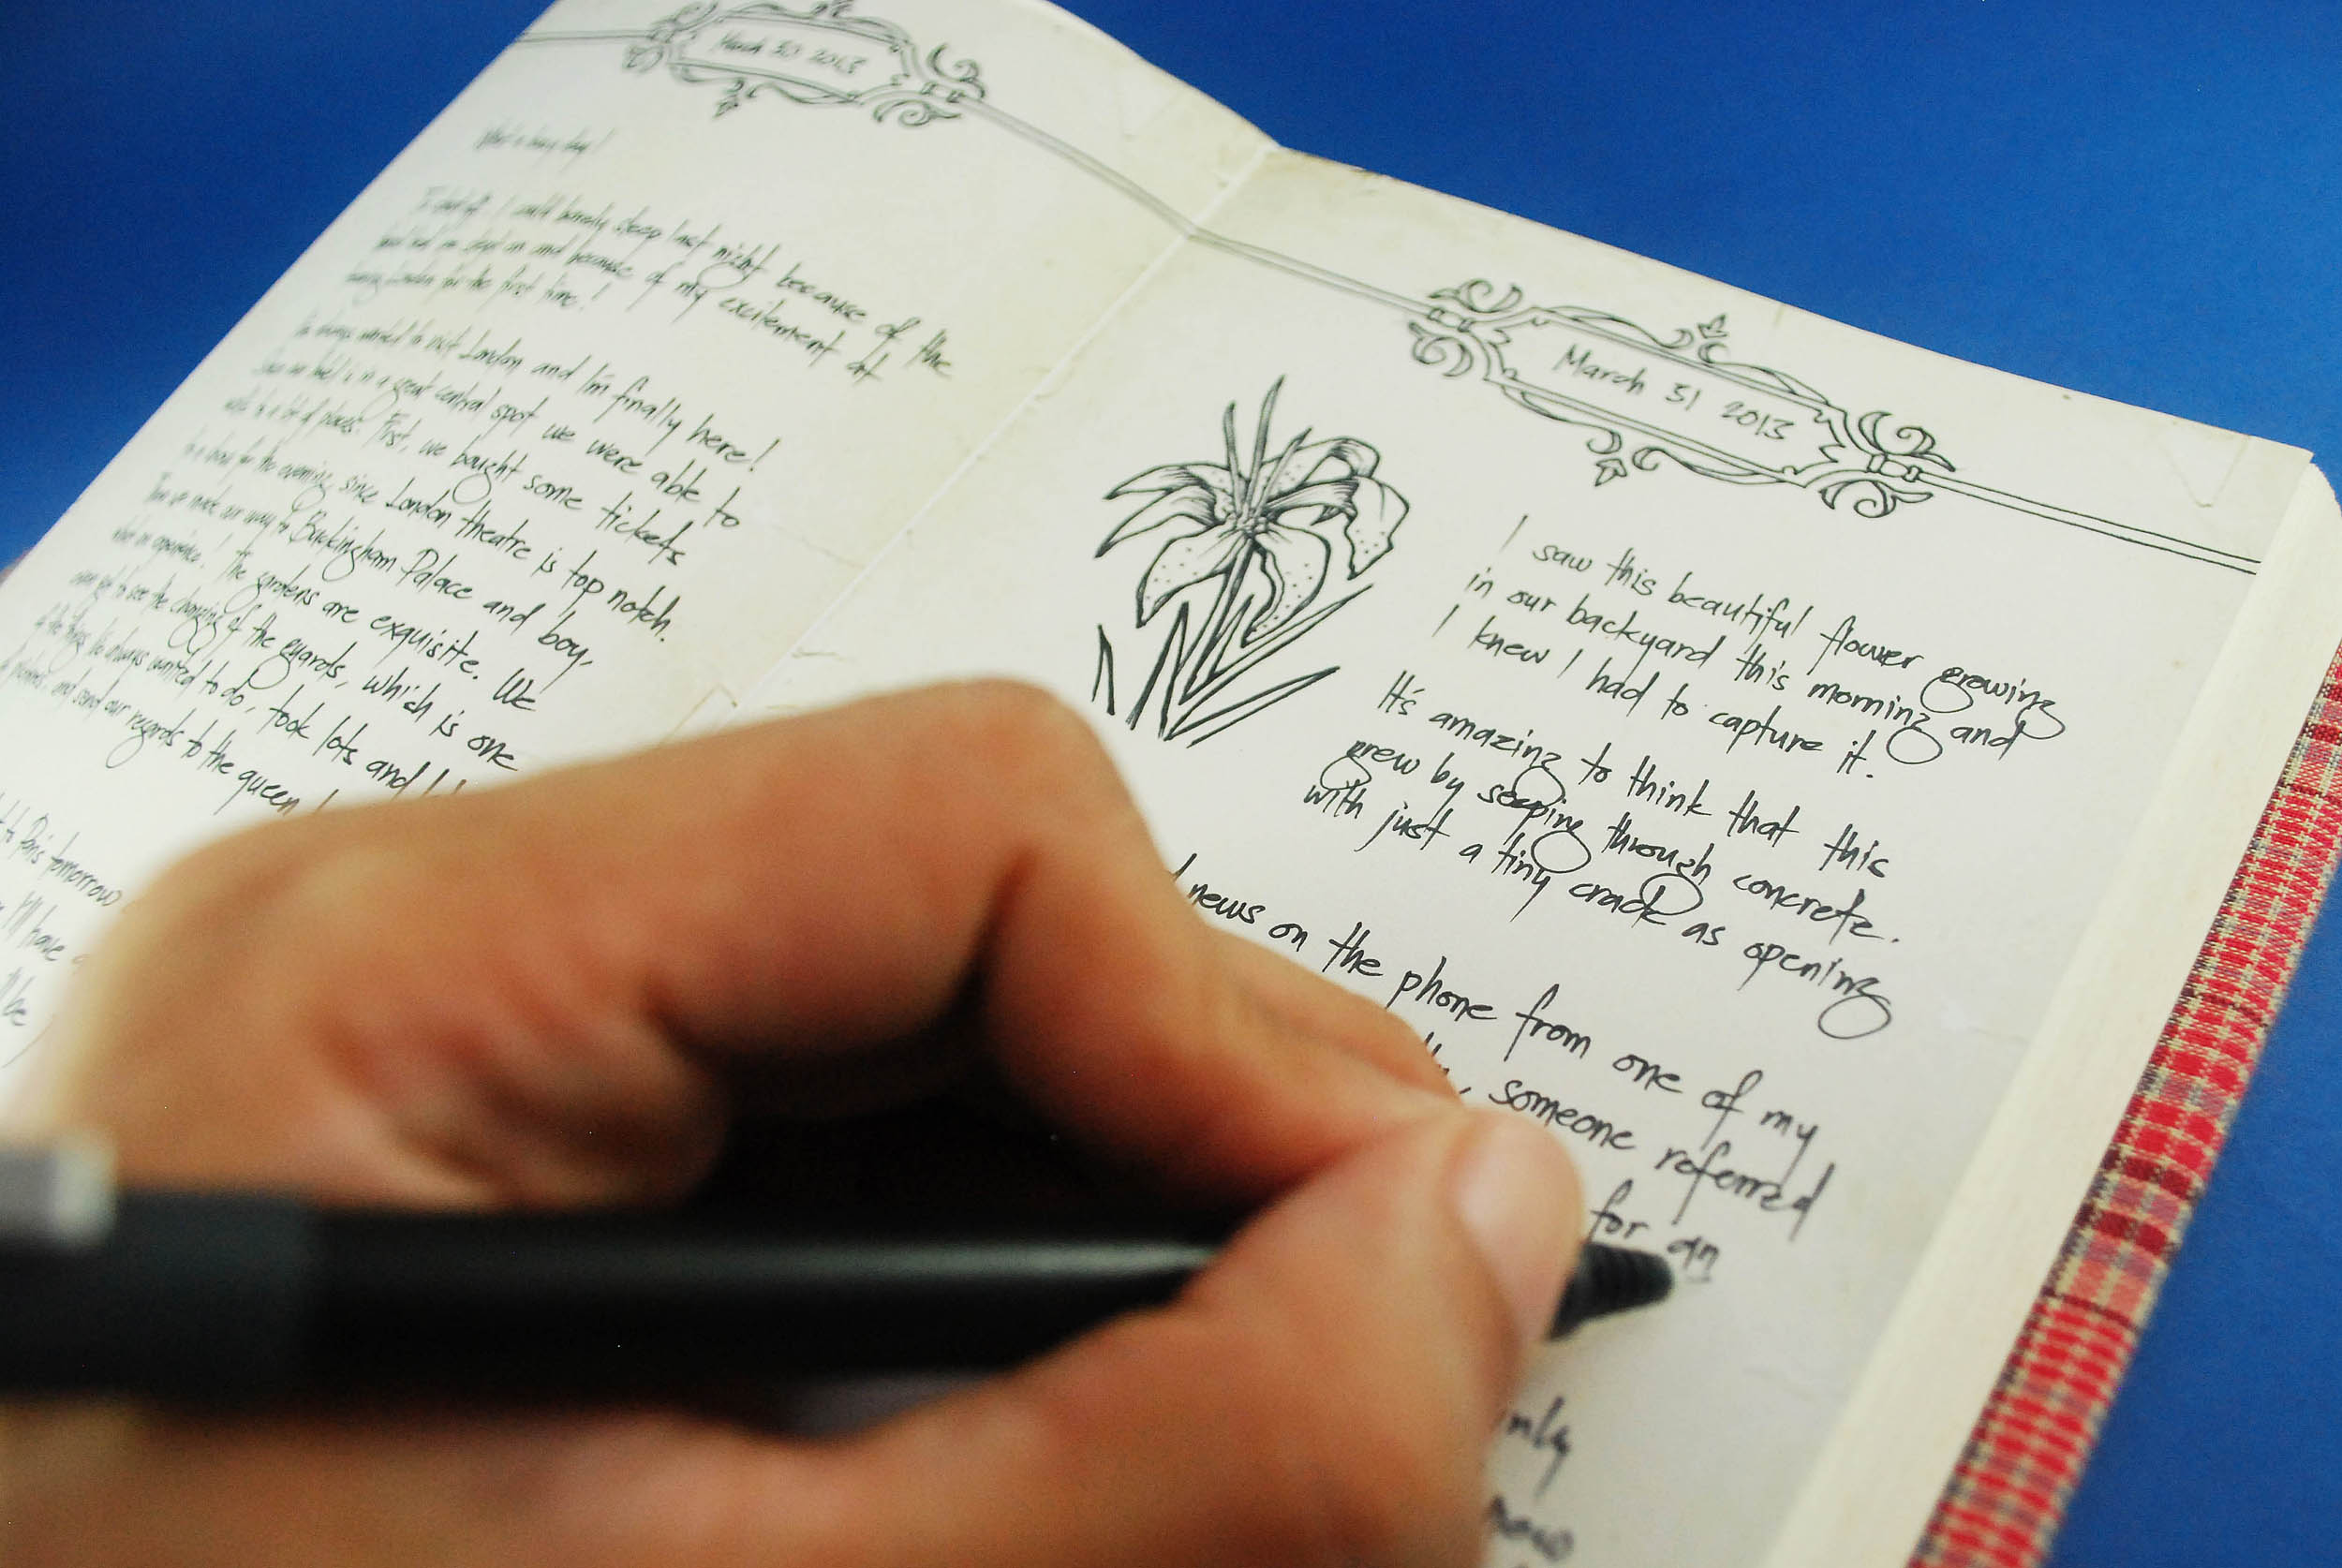 March 30 2013
What a busy day!
I could barely sleep last night because of the
and because of my excitement at
seeing London for the first time!
I've always wanted to visit London and I'm finally here!
Since our hotel is in a great central spot we were able to
walk to a lot of places. First, we bought some tickets
to a show for the evening, since London theatre is top notch.
Then we made our way to Buckingham Palace and boy,
what an experience! The gardens are exquisite. We
even got to see the changing of the guards, which is one
of the things I've always wanted to do, took lots and
and send our regards to the queen
to Paris tomorrow
I'll have
be
March 31 2013
I saw this beautiful flower growing
in our backyard this morning and
I knew I had to capture it.
It's amazing to think that this
grew by seeping through concrete.
with just a tiny crack as opening
news on the phone from one of my
, someone referred
for an
nly
now